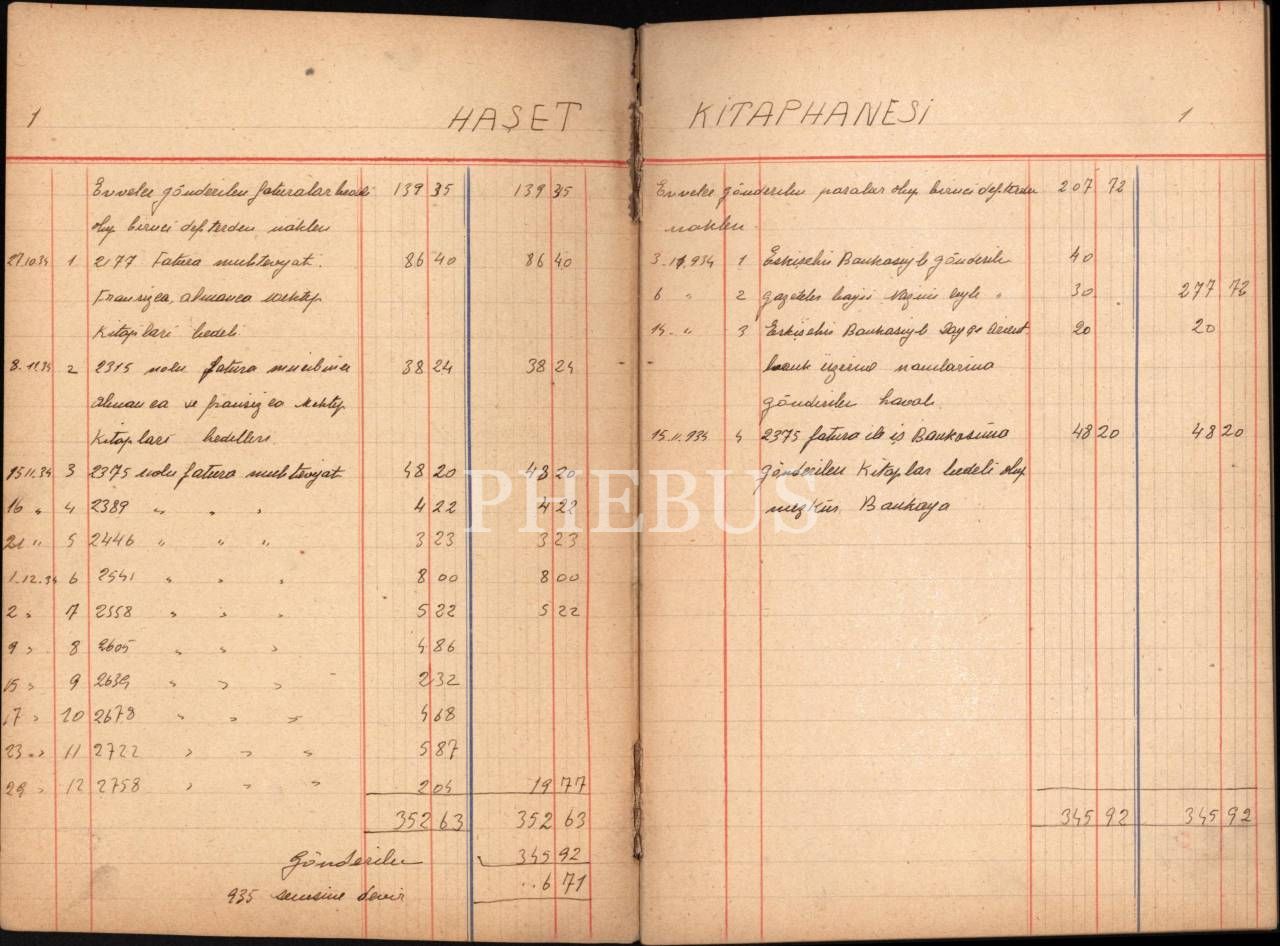 1 HAŞET
Evvelce gönderilen faturalar bedeli 139 35 139 35
olup birinci defterden naklen
27.10.34 1 2177 Fatura muhteviyat. 86 40 86 40
Fransızca, almanca mektep
Kitapları bedeli
8.11.34 2 2315 nolu fatura mucibince 38 24 38 24
almanca ve fransızca Mektep
Kitapları bedelleri
15.11.34 3 2375 nolu fatura muhteviyat 48 20 48 20
16 " 4 2389 " " " 4 22 4 22
21 " 5 2446 " " " 3 23 3 23
1.12.34 6 2541 " " " 8 00 8 00
2 " 7 2558 " " " 5 22 5 22
9 " 8 2605 " " " 4 86
15 " 9 2639 " " " 2 32
17 " 10 2678 " " " 4 68
23 " 11 2722 " " " 5 87
29 " 12 2758 " " " 2 04 19 77
352 63 352 63
Gönderilen 345 92
6 71
935 senesine devir
KİTAPHANESİ 1
Evvelce gönderilen paralar olup birinci defterden 207 72
naklen
3.11.934 1 Eskişehir Bankasiyle gönderilen 40
6 " 2 gazeteler bayii Nazmi beyle " 30 277 72
14 " 3 Eskişehir Bankasiyle 20 20
bank üzerine namlarına
gönderilen havale
15.11.934 4 2375 fatura ile iş Bankasına 48 20 48 20
gönderilen Kitaplar bedeli olup
mezkür Bankaya
345 92 345 92
PHEBUS